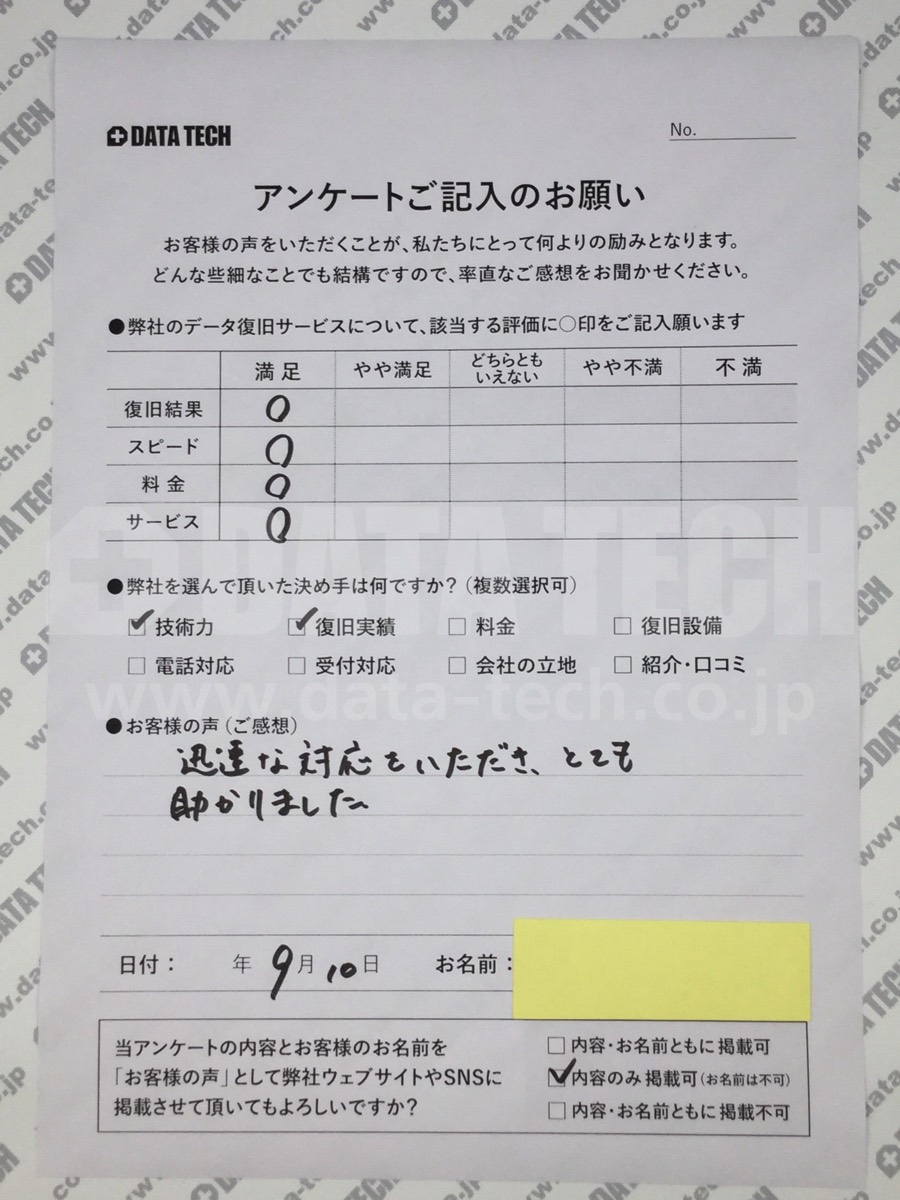 DATA TECH
No.
アンケートご記入のお願い
お客様の声をいただくことが、私たちにとって何よりの励みとなります。
どんな些細なことでも結構ですので、率直なご感想をお聞かせください。
●弊社のデータ復旧サービスについて、該当する評価に○印をご記入願います
満足 やや満足 どちらとも いえない やや不満 不満
復旧結果 ○
スピード ○
料金 ○
サービス ○
●弊社を選んで頂いた決め手は何ですか？（複数選択可）
☑技術力 ☑復旧実績 □料金 □復旧設備
□電話対応 □受付対応 □会社の立地 □紹介・口コミ
●お客様の声（ご感想）
迅速な対応をいただき、とても
助かりました
日付： 年 9月 10日 お名前：
当アンケートの内容とお客様のお名前を
「お客様の声」として弊社ウェブサイトやSNSに
掲載させて頂いてもよろしいですか？
□内容・お名前ともに掲載可
☑内容のみ掲載可（お名前は不可）
□内容・お名前ともに掲載不可
DATA TECH
www.data-tech.co.jp